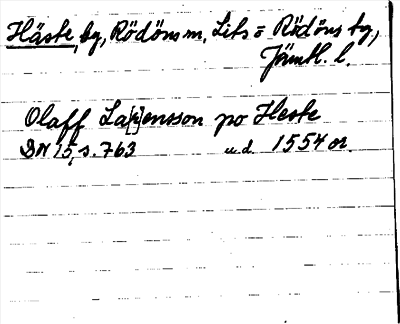 Häste, by, Rödöns m, Lits = Rödöns tg,
Jämtl. l.
Olaff La[r]ensson po Heste
DN 15, s. 763 u.d. 1554 or.